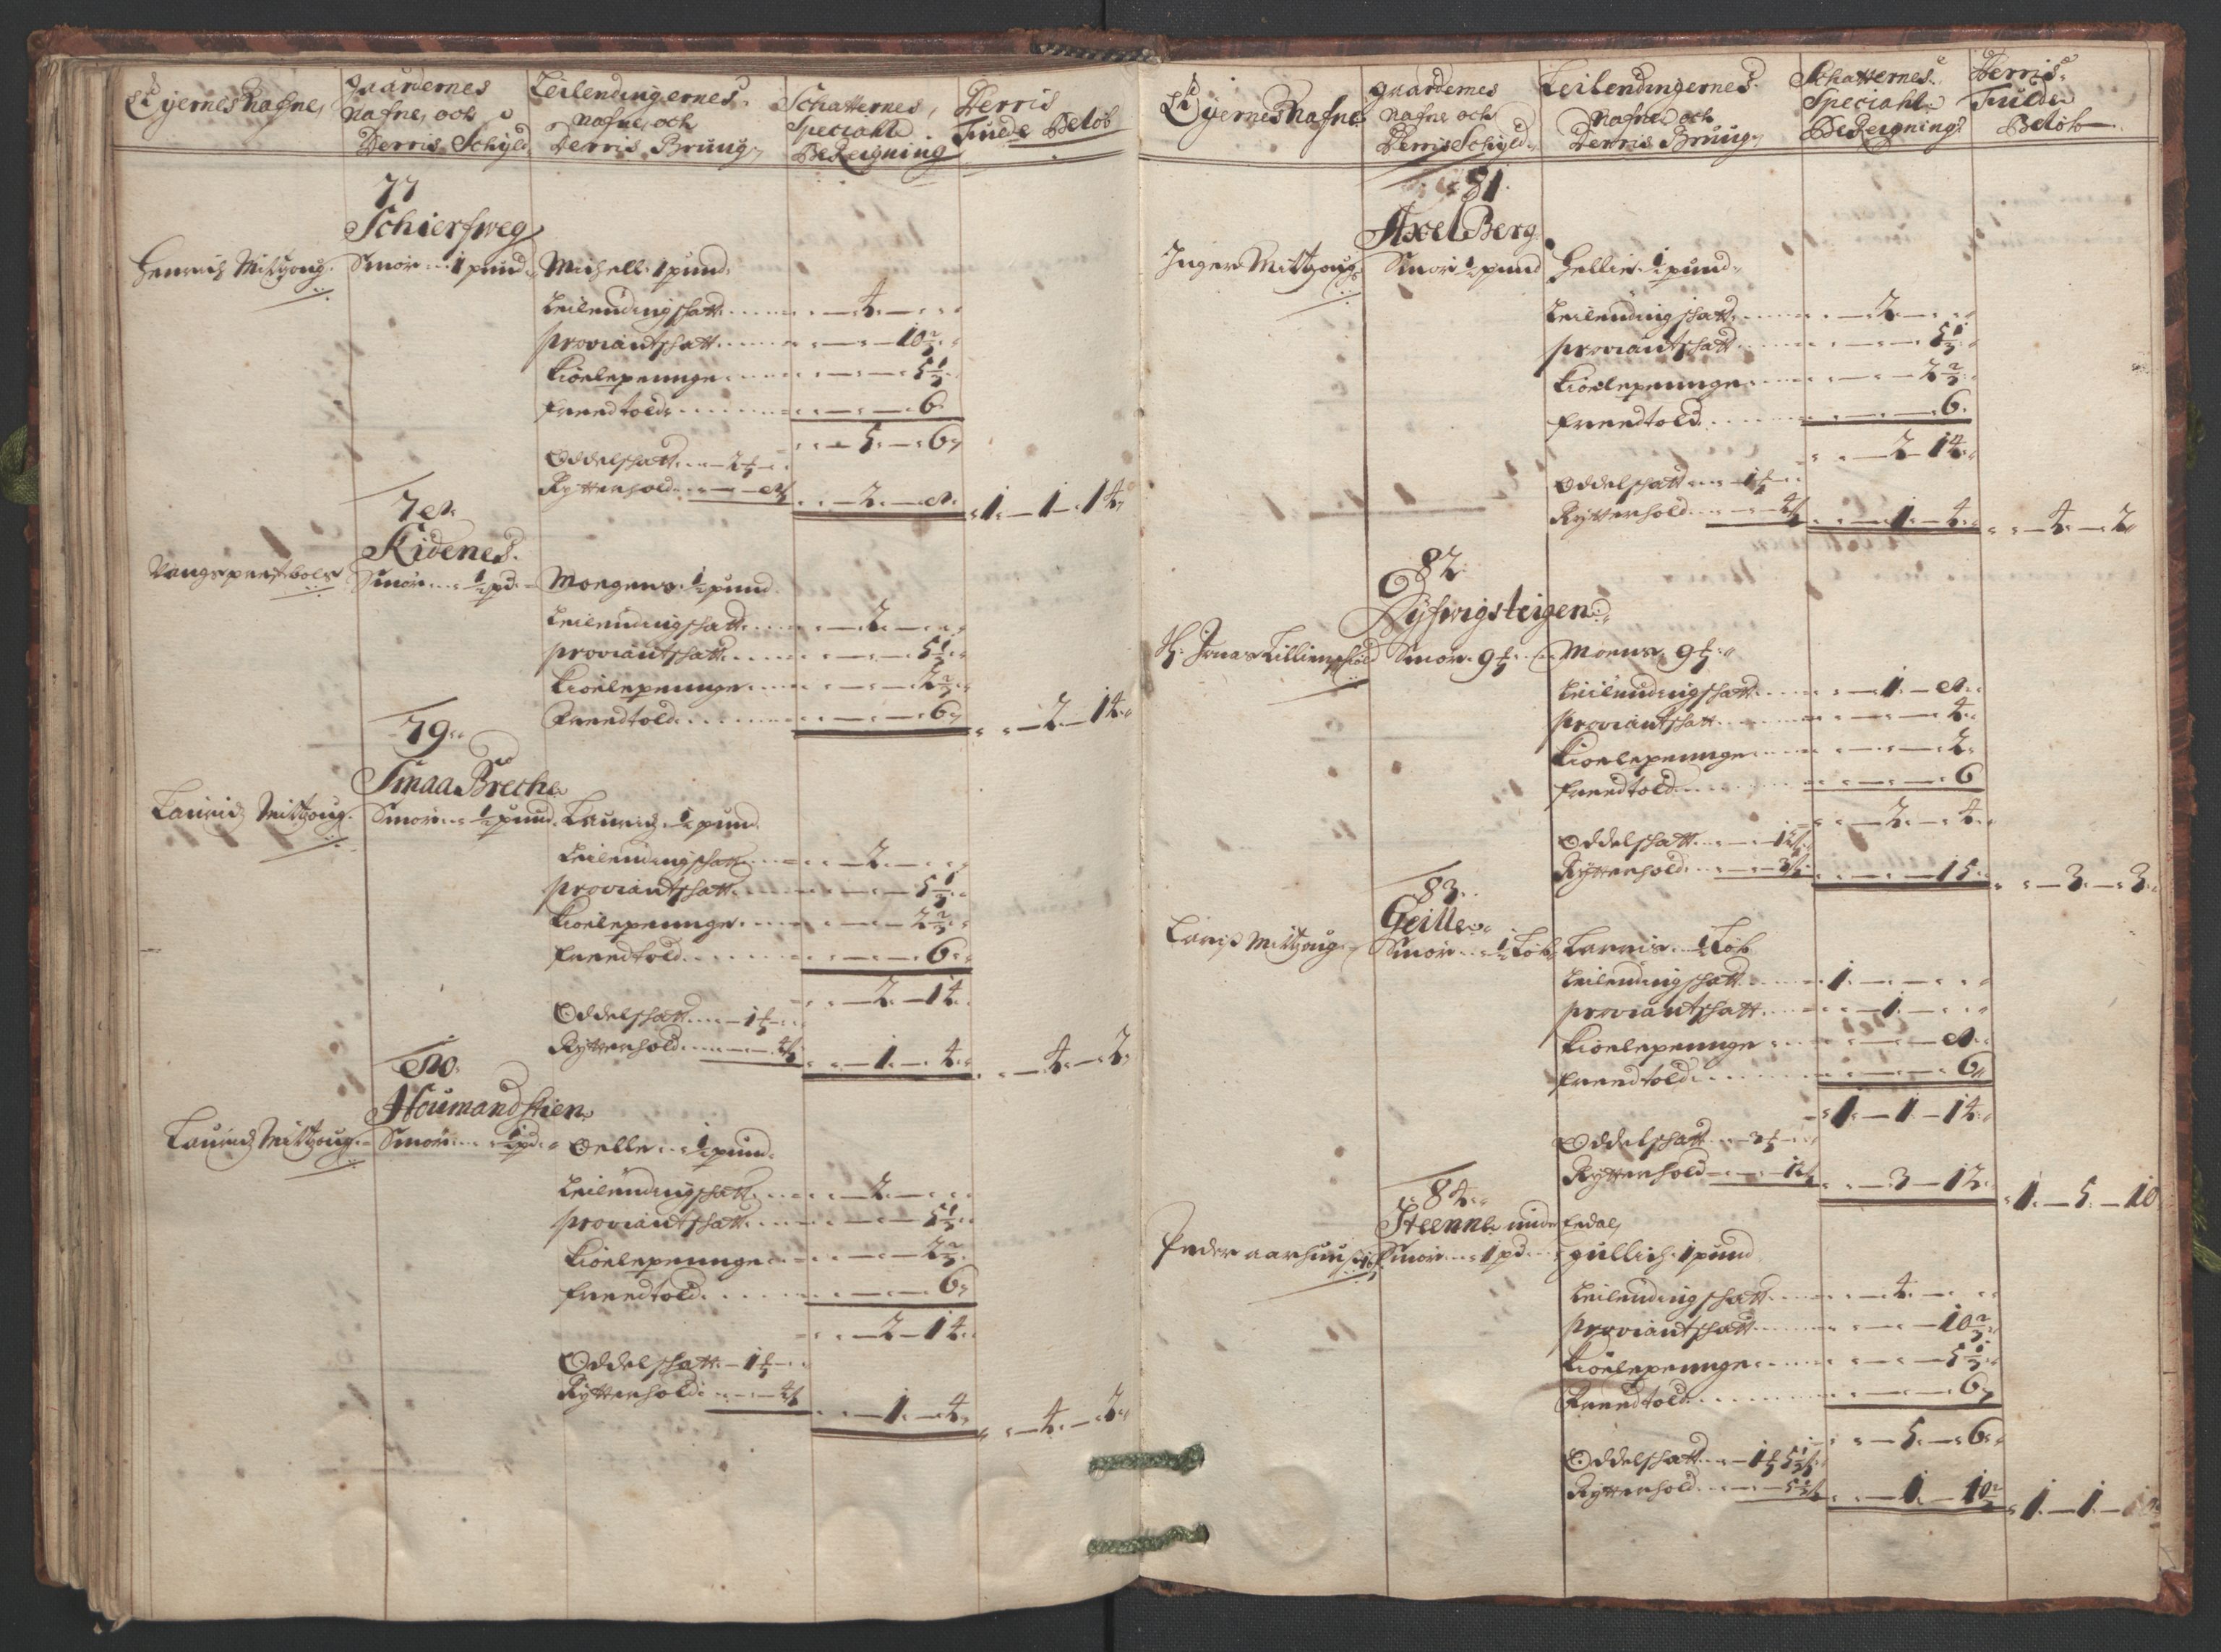 Eyernes Nafne,
Gaardernes
Nafne, och
Derris Schyld
Leilendingernes
Nafne, och
Derris Bruug,
Schatternes,
Speciahle
BeReigning
Derris
Fuede Beløb
77
Schiersweg
Henrich Miltzoug. Smør 1 pund. Michell. 1 pund.
Leilendingschatt 4
proviantschatt 10 2/3
kioelepeninge 5 1/3
freedtold 6
5 6
Oddelschatt 2
Rytterhold 8
2 8 1 1 14
78
Kidenes.
Vangs prestbole Smør 1/2 pd. Mogens 1/2 pund
Leilendingschatt 2
proviantschatt 5 1/3
kioelepeninge 2 2/3
freedtold 6 2 14
79
Smaa Breche
Lauridz Miltzoug. Smør 1/2 pund. Lauridz 1/2 pund
Leilendingschatt 2
proviantschatt 5 1/3
kioelepeninge 2 2/3
freedtold 6
2 14
Oddelschatt 1
Rytterhold 4
1 4 4 2
80
Houmandstien
Lauridz Miltzoug Smør 1/2 pd. Oelle 1/2 pund.
Leilendingschatt 2
proviantschatt 5 1/3
kioelepeninge 2 2/3
freedtold 6
2 14
Oddelschatt 1
Rytterhold 4
1 4 4 2
Eyernes Nafne
Gaardernes
Nafne och
Derris Schyld
Leilendingernes
Nafne och
Derris Bruug,
Schatternes
Speciahle
BeReigning
Derris
Fulde
Beløb
81
Axel Berg
Inger Miltzoug Smør 1/2 pund Hellie 1/2 pund
Leilendingschatt 2
proviantschatt 5 1/3
kioelepeninge 2 2/3
freedtold 6
2 14
Oddelschatt 1
Rytterhold 4
1 4 4 2
82
H: Jonas Lillienschiold Smør 9 Moens 9
Leilendingschatt 1 8
proviantschatt 4
kioelepeninge 2
freedtold 6
2 4
Oddelschatt 12
Rytterhold 3
15 3 3
83
Geille
Laris Miltzoug Smør 1/2 Løb Larris 1/2 Løb
Leilendingschatt 1
proviantschatt 1
kioelepeninge 8
freedtold 6
1 1 14
Oddelschatt 3
Rytterhold 12
3 12 1 5 10
84
Steenne udi Fedal
Peder Aarhuus Smør 1 pd. gullich 1 pund
Leilendingschatt 4
proviantschatt 10 2/3
kioelepeninge 5 1/3
freedtold 6
5 6
Oddelschatt 1 5 1/3
Rytterhold 5 1/3
1 10 2/3 1 1